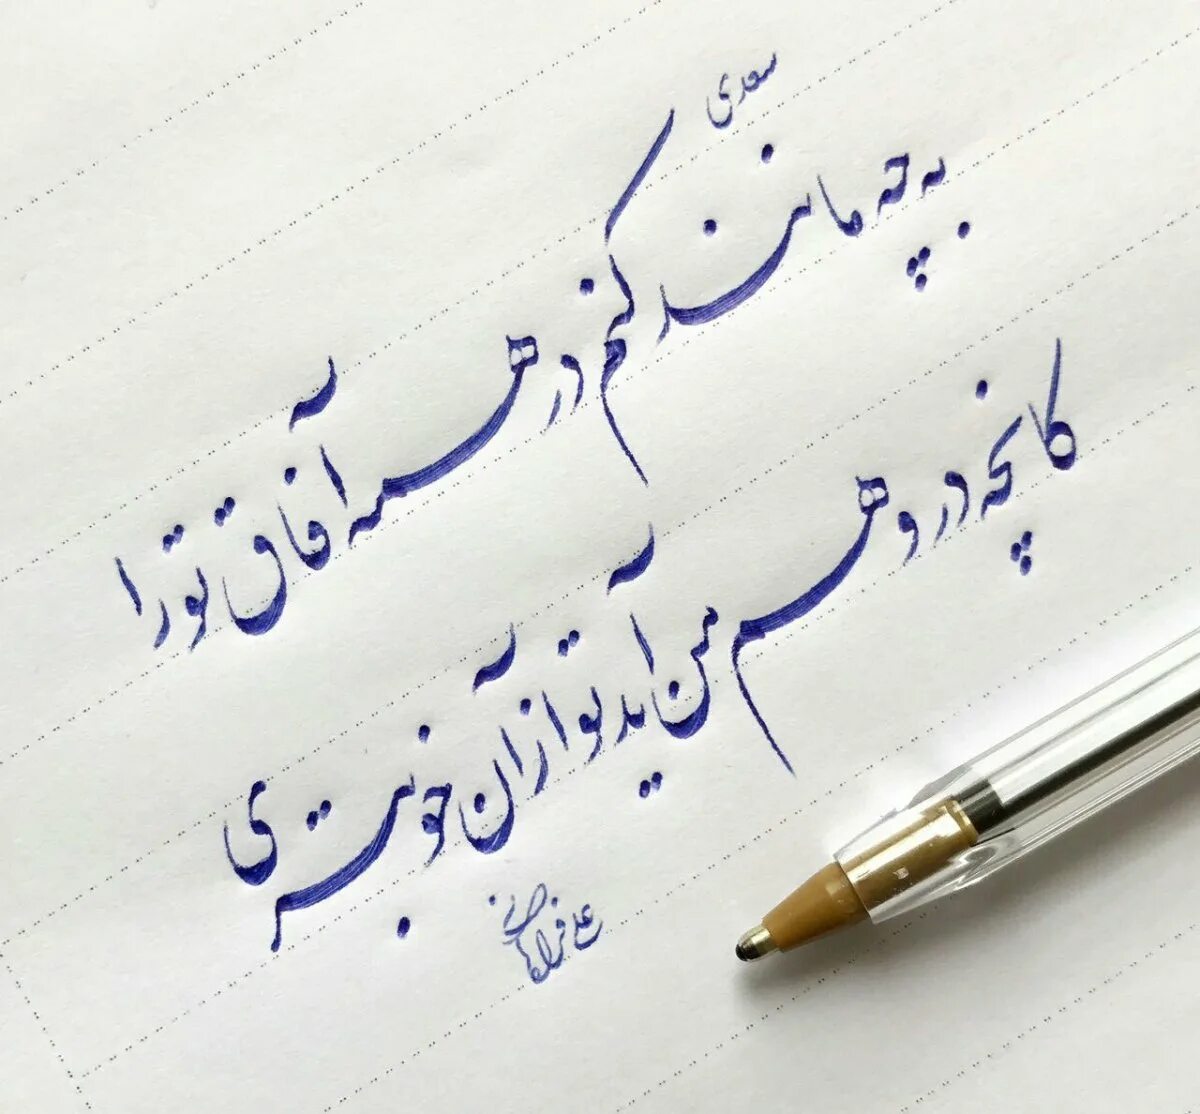 سعدی
به چه مانند کنم در همه آفاق تو را
کانچه در وهم من آید تو از آن خوبتری
علی فراهانی